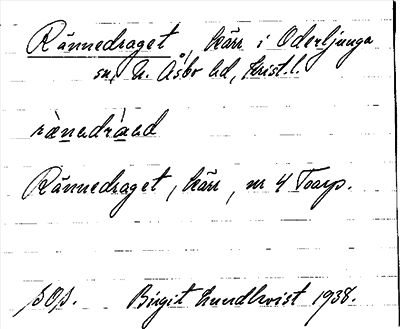 Rännedraget, kärr i Oderljunga
sn, N. Åsbo hd, Krist. l.
rænedraad
Rännedraget, kärr, nr 4 Toarp.
sop. Birgit Lundkvist 1938.